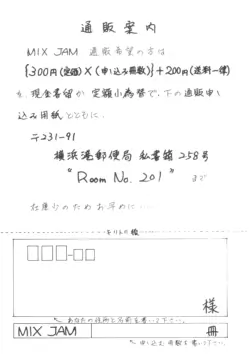 通販案内
MIX JAM 通販希望の方は
{300円(定価)×(申し込み冊数)}+200円(送料一律)
を現金書留か定額小為替で、下の通販申し
込み用紙とともに、
〒231-91
横浜港郵便局 私書箱258号
"Room No. 201" まで
在庫少のためお早めに……
キリトリ線
様
あなたの住所と名前を書いて下さい。
MIX JAM 冊
申し込む冊数を書いて下さい。